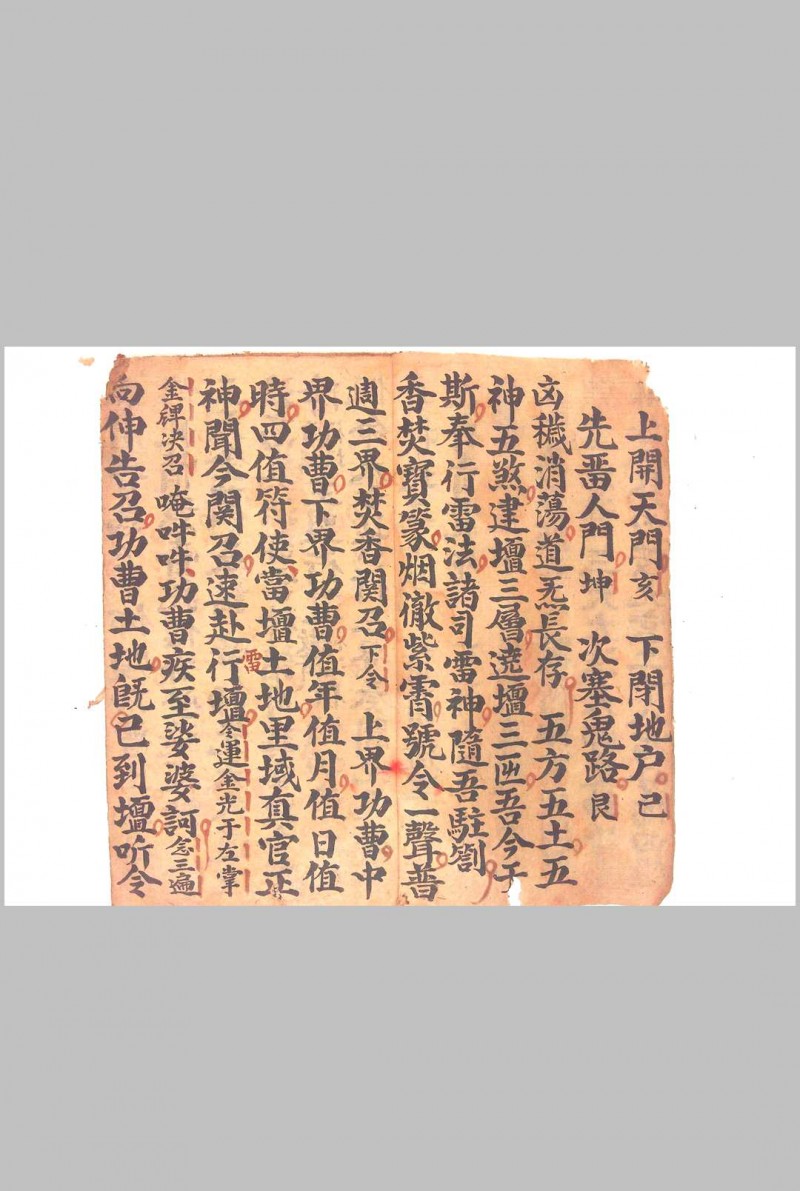 上開天門亥　下閉地户己
先畱人門坤　次塞鬼路艮
凶穢消蕩道炁長存　五方五土五
神五煞建壇三層遶壇三匝吾今于
斯奉行雷法諸司雷神隨吾駐劄
香焚寳篆烟徹紫霄號令一聲普
週三界焚香関召下令　上界功曹中
界功曹下界功曹值年值月值日值
時四值符使當壇土地里域真官正
神聞今関召速赴行雷壇令運金光于左掌
金碑决召　唵吽吽功曹疾至娑婆訶念三遍
向伸告召功曹土地既已到壇听令